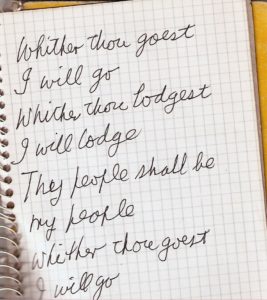 Whither thou goest
I will go
Whither thou lodgest
I will lodge
They people shall be
my people
Whither thou goest
I will go